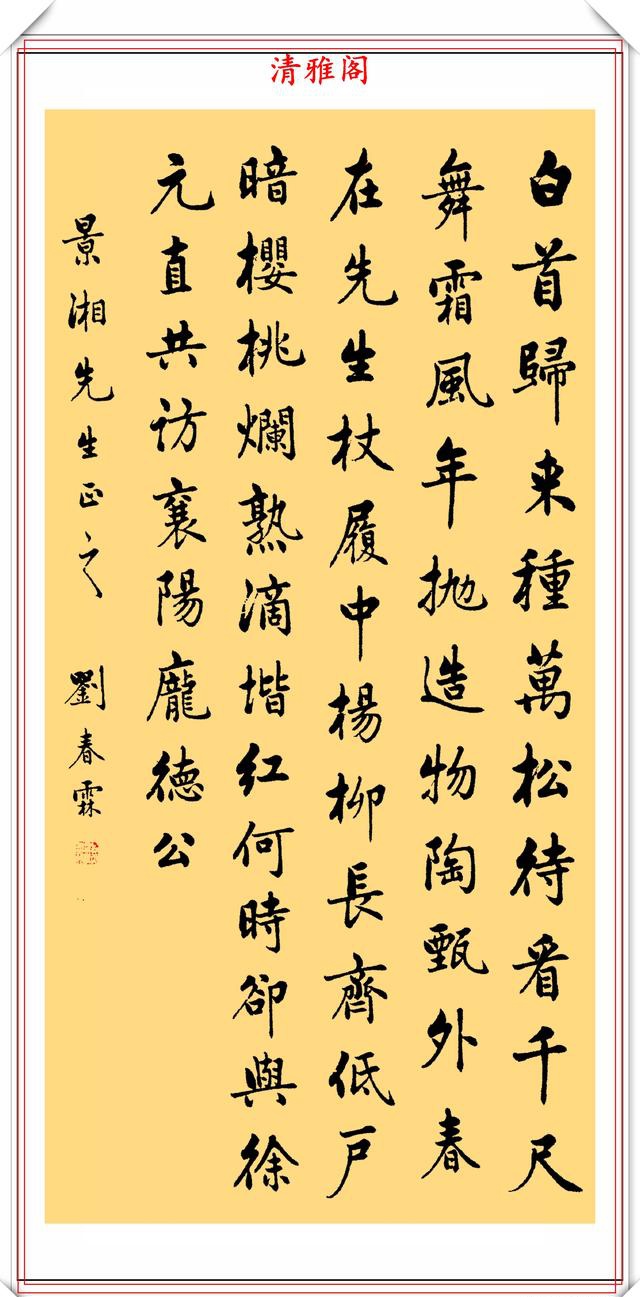 清雅阁
白首歸来種萬松待看千尺
舞霜風年抛造物陶甄外春
在先生杖履中楊柳長齊低戸
暗櫻桃爛熟滴堦紅何時卻與徐
元直共访襄陽龐德公
景湘先生正之
劉春霖